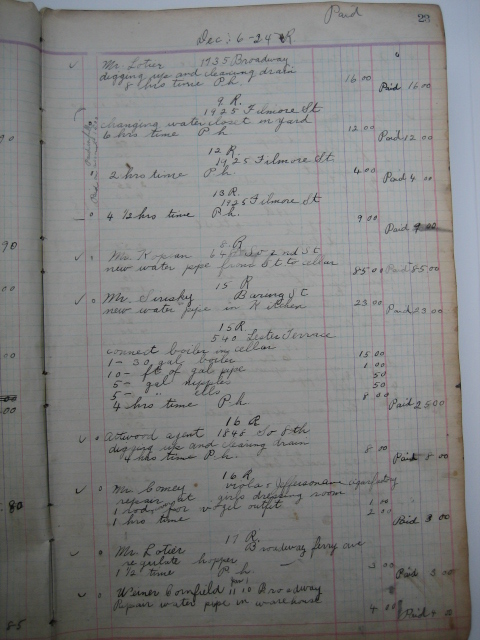 Paid 23
Dec 6-24 R
Mr. Lotier 1935 Broadway
digging up and cleaning drain
8 hrs time P.h. 16 00 Paid 16 00
9 R.
1925 Filmore St
changing water closet in yard
6 hrs time P.h 12 00 Paid 12 00
12 R.
1925 Filmore St.
2 hrs time P.h. 4 00 Paid 4 00
13 R.
1925 Filmore St
4 1/2 hrs time P.h. 9 00 Paid 9 00
8 R
Mr. 2nd St
new water pipe from St to cellar 85 00 Paid 85 00
15 R
Mr. Baring St
new water pipe in Kitchen 23 00 Paid 23 00
15 R
540 Lester Terrace
connect boiler in cellar 15 00
1 - 30 gal. boiler
10 - ft of gal pipe 1 00
5 - gal nipples 50
5 - " ells 50
4 hrs time P.h 8 00 Paid 25 00
16 R
Atwood agent 1848 So 8th
digging up and drain
4 hrs time P.h. 8 00 Paid 8 00
16 R.
Mr. Comey
repair at girls dressing room
1 for outfit 1 00
1 hrs time 2 00 Paid 3 00
17 R.
Mr. Lotier Broadway ferry ave
regulate hopper
1 1/2 time P.h. 3 00 Paid 3 00
Cornfield 1110 Broadway
Repair water pipe in warehouse 4 00 Paid 4
90
00
00
00
80
85